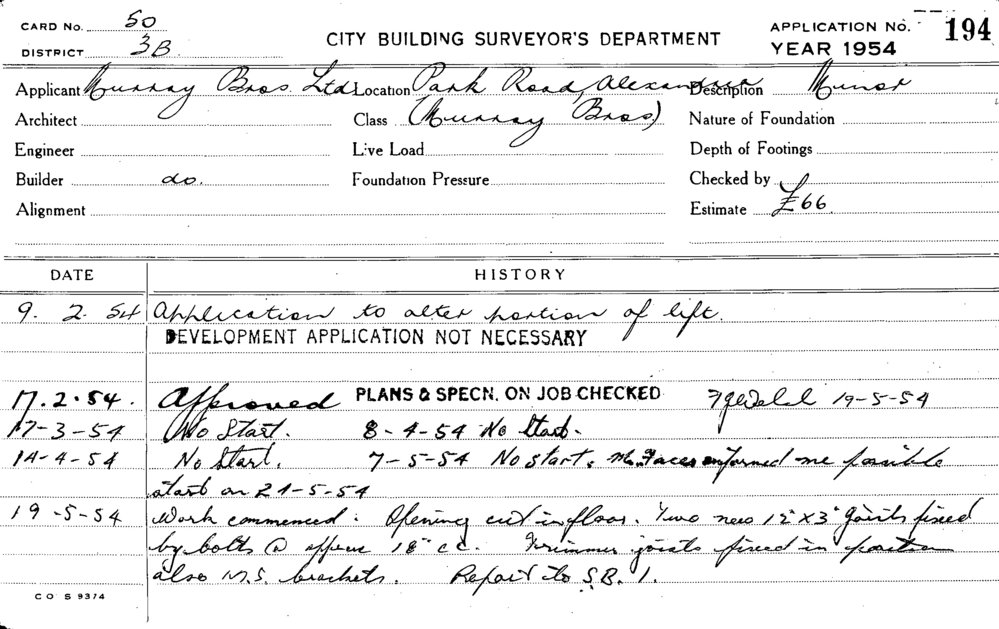 CARD No. 50
DISTRICT 3B
CITY BUILDING SURVEYOR'S DEPARTMENT
APPLICATION No. 194
YEAR 1954
Applicant Murray Bros. Ltd Location Park Road, Alexandria Description Minor
Architect Class (Murray Bros) Nature of Foundation
Engineer Live Load Depth of Footings
Builder do. Foundation Pressure Checked by
Alignment Estimate £66
DATE HISTORY
9. 2. 54 Application to alter portion of lift.
DEVELOPMENT APPLICATION NOT NECESSARY
17.2.54. Approved PLANS & SPECN. ON JOB CHECKED 19-5-54
17-3-54 No Start. 8-4-54 No Start.
14-4-54 No Start. 7-5-54 No start. Mr. informed me possible
start on 21-5-54
19-5-54 Work commenced. Opening cut in floor. Two new 12"x3" joists fixed
by bolts @ 18" cc. Trimmer joists fixed in position
also M.S. brackets. Report to S.B.1.
CO S 9374